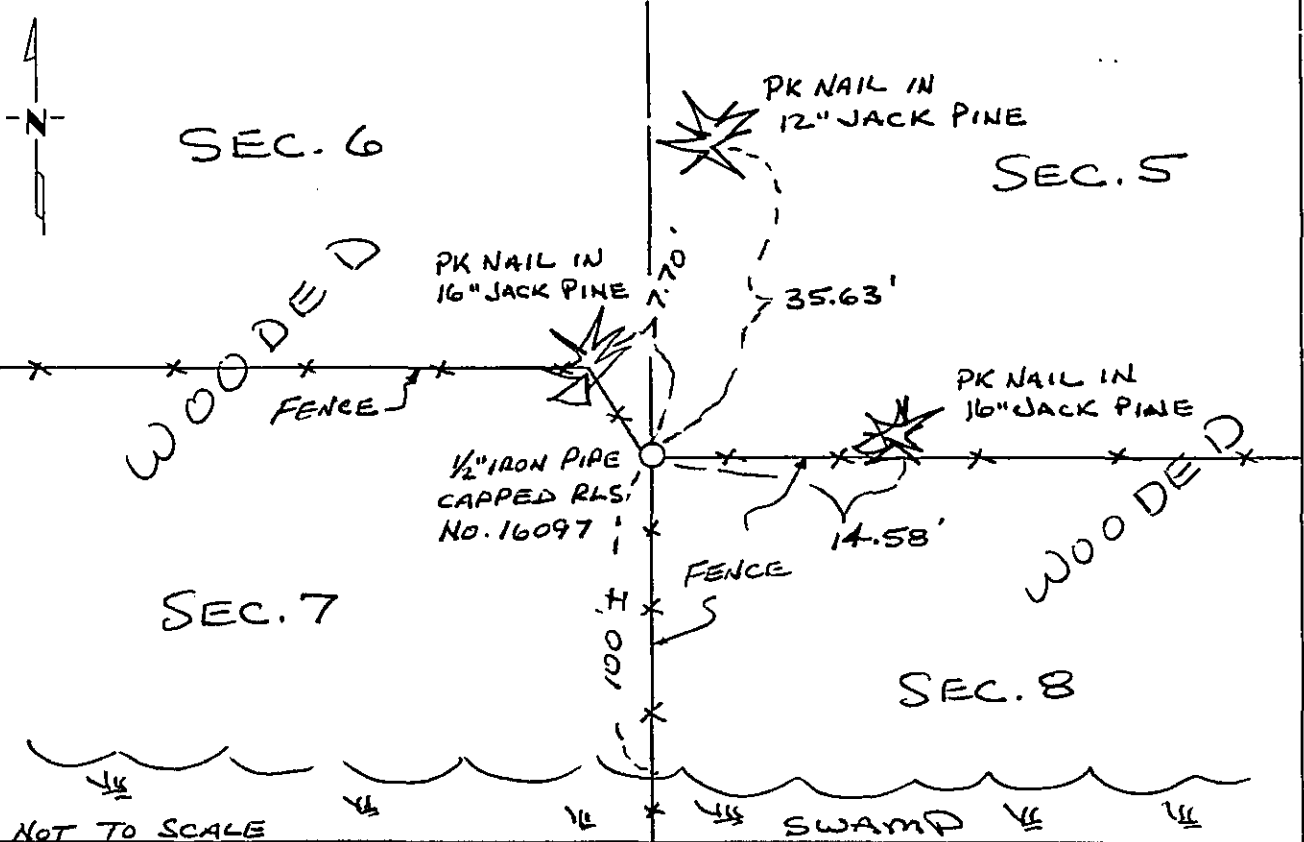 N
SEC. 6
PK NAIL IN
12" JACK PINE
SEC. 5
WOODED
PK NAIL IN
16" JACK PINE
7.70'
35.63'
FENCE
PK NAIL IN
16" JACK PINE
1/2" IRON PIPE
CAPPED RLS
NO. 16097
14.58'
WOODED
FENCE
SEC. 7
100
SEC. 8
NOT TO SCALE
SWAMP